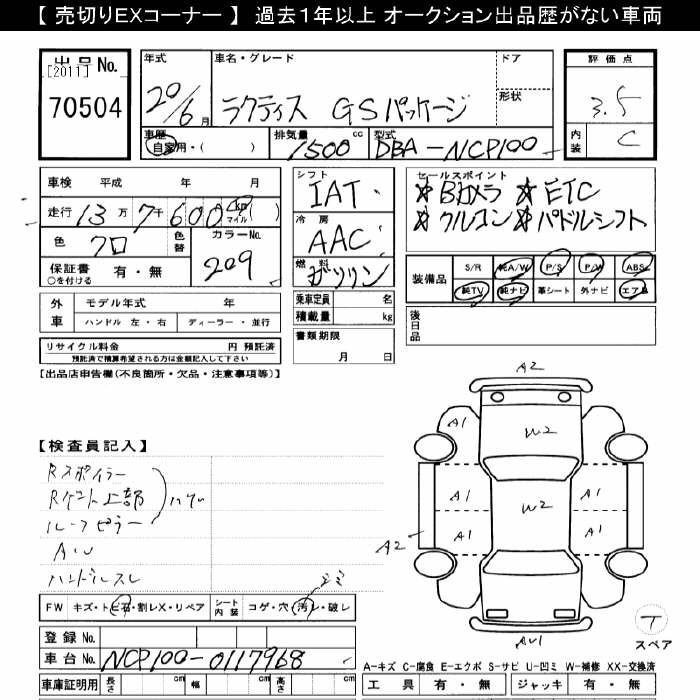 【 売切りEXコーナー 】 過去1年以上 オークション出品歴がない車両
出品No.
[2011]
70504
年式
20/6月
車名・グレード
ラクティス GSパッケージ
ドア
形状
評価点
3.5
内装
C
車歴
自家用・( )
排気量
1500 cc
型式
DBA-NCP100
車検 平成 年 月
走行 13万7千600 km マイル ( )
色 クロ
色替
カラーNo.
209
保証書 有・無
○を付ける
シフト
IAT
冷房
AAC
燃料
ガソリン
乗車定員 名
積載量 kg
書類期限
月 日
セールスポイント
☆Bカメラ ☆ETC
☆クルコン ☆パドルシフト
装備品
S/R 純A/W P/S P/W ABS
純TV 純ナビ 革シート 外ナビ エアB
後日品
外車
モデル年式 年
ハンドル 左・右 ディーラー・並行
リサイクル料金 円 預託済
預託済で精算希望される方は金額記入して下さい
【出品店申告欄(不良箇所・欠品・注意事項等)】
【検査員記入】
Rスポイラー
Rゲート上部
ルーフピラー
ハゲ
AW
ハンドルスレ
FW キズ・トビ石・割レX・リペア
シート内装 コゲ・穴・汚レ・破レ
シミ
登録No.
車台No. NCP100-0117968
車庫証明用 長さ cm 幅 cm 高さ cm
A2
A1
W2
A1
A1
W2
A1
A1
A1
A2
AU1
T
スペア
A-キズ C-腐食 E-エクボ S-サビ U-凹ミ W-補修 XX-交換済
工具 有・無 ジャッキ 有・無